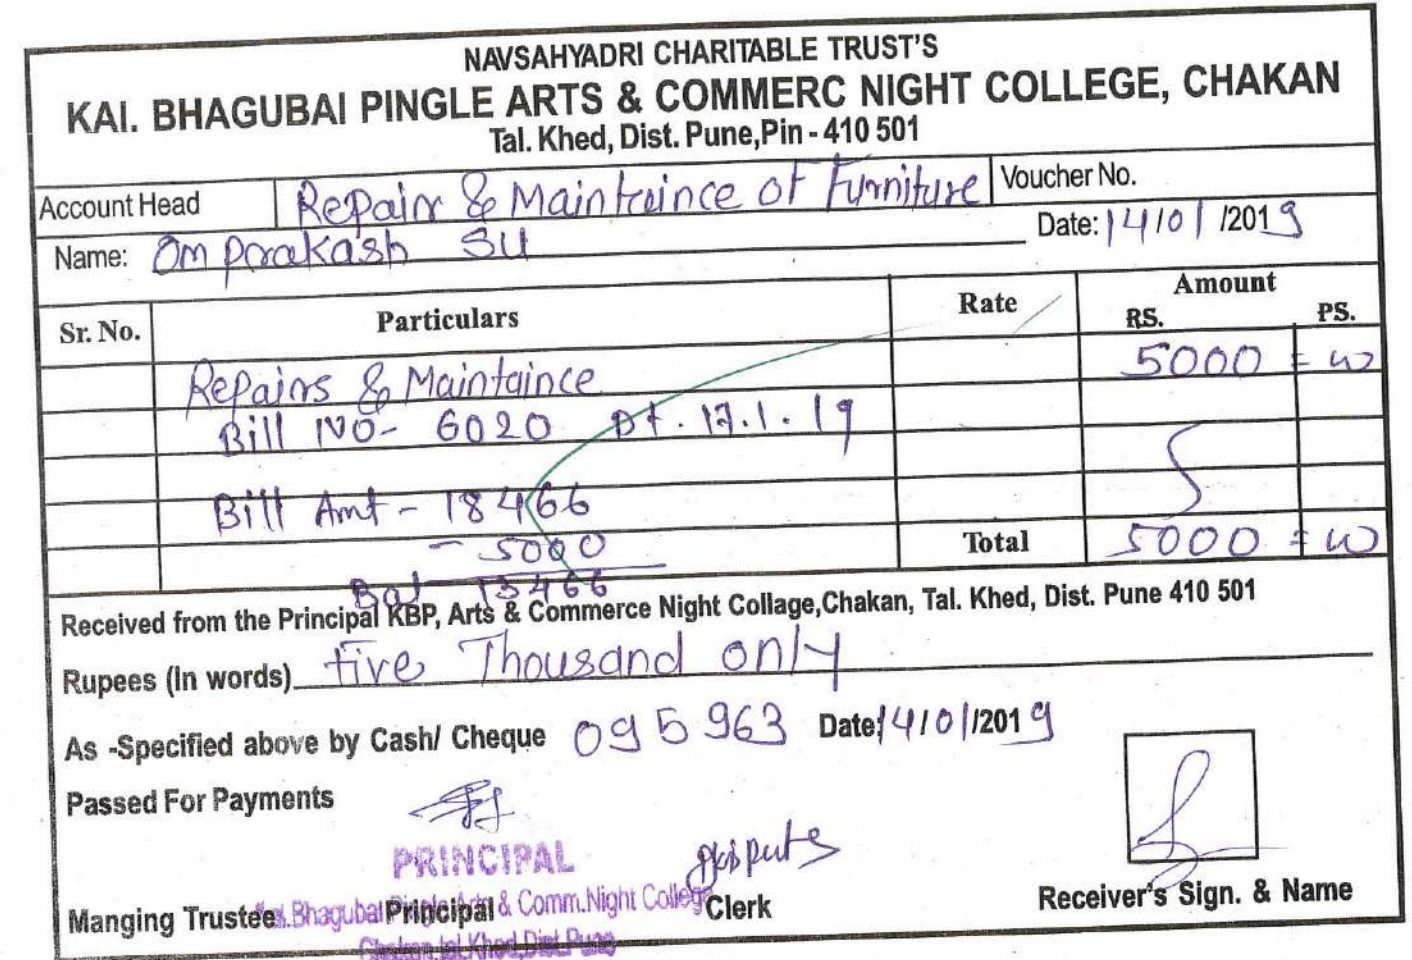 NAVSAHYADRI CHARITABLE TRUST'S
KAI. BHAGUBAI PINGLE ARTS & COMMERC NIGHT COLLEGE, CHAKAN
Tal. Khed, Dist. Pune,Pin - 410 501
Account Head Repair & Maintaince of Furniture Voucher No.
Name: Om prakash SU Date: 14/01/2019
Sr. No. Particulars Rate Amount
RS. PS.
Repairs & Maintaince 5000 =
Bill NO- 6020 Dt. 17.1.19
Bill Amt - 18466
- 5000 Total 5000 =
Bal 13466
Received from the Principal KBP, Arts & Commerce Night Collage,Chakan, Tal. Khed, Dist. Pune 410 501
Rupees (In words) five Thousand only
As -Specified above by Cash/ Cheque 095963 Date:14/01/2019
Passed For Payments
PRINCIPAL
Kai.Bhagubai Pingle Arts & Comm.Night College
Chakan,tal.Khed,Dist.Pune
Manging Trustee Principal Clerk Receiver's Sign. & Name